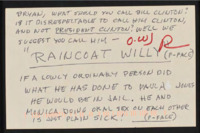 BRYAN, WHAT SHOULD YOU CALL BILL CLINTON?
IF IT DISRESPECTABLE TO CALL HIM CLINTON,
AND NOT PRESIDENT CLINTON, WELL WE
SUGGEST YOU CALL HIM —
"RAINCOAT WILLY" (P-FACE)
IF A LOWLY ORDINARY PERSON DID
WHAT HE HAS DONE TO PAULA JONES
HE WOULD BE IN JAIL. HE AND
MONICA DOING ORAL SEX ON EACH OTHER
IS JUST PLAIN SICK! (P-FACE)